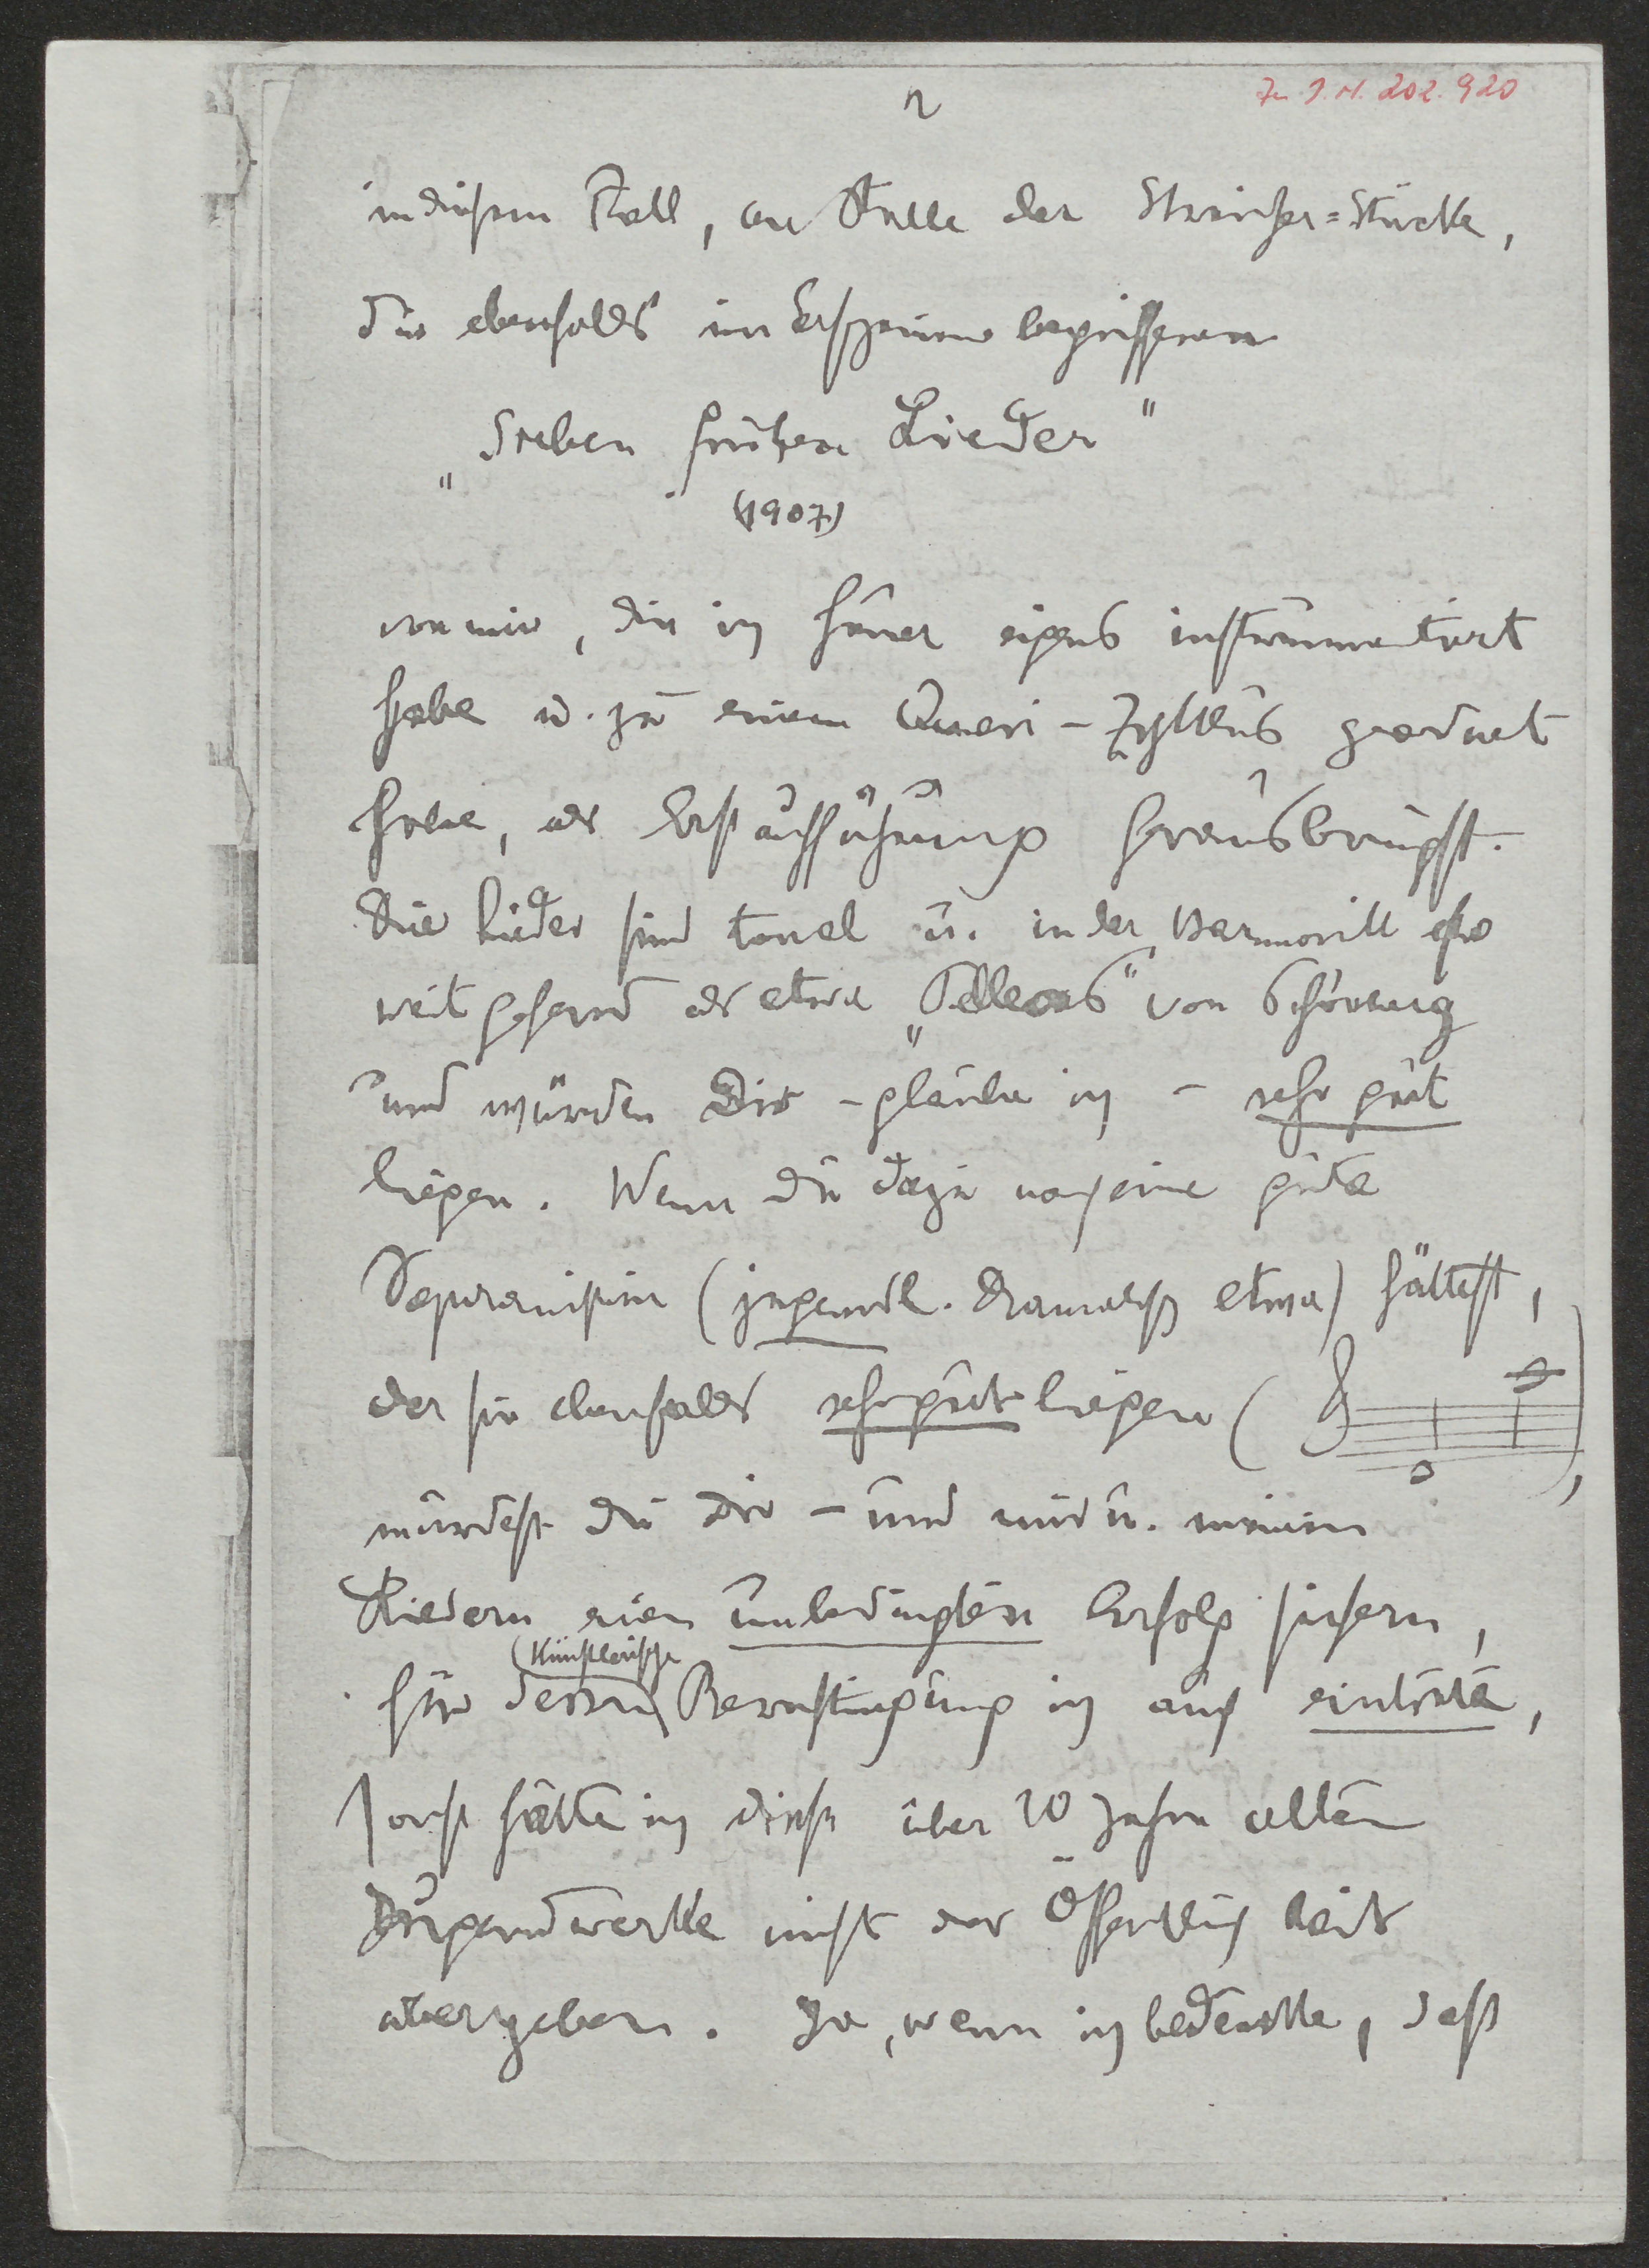 2
Zu I.N. 202.920
in diesem Fall, an Stelle der Streicher=Stücke,
die ebenfalls im Erscheinen begriffenen
„Sieben frühen Lieder"
(1907)
von mir, die ich heuer eigens instrumentiert
habe u. zu einem Quasi-Zyklus geordnet
habe, als Erstaufführung herausbringst.
Die Lieder sind tonal u. in der Harmonik so
weitgehend als etwa „Pelleas" von Schönberg
und würden Dir - glaube ich - sehr gut
liegen. Wenn Du dazu noch eine gute
Sopranistin (jugendl. dramatisch etwa) hättest,
der sie ebenfalls sehr gut liegen ( ),
würdest Du Dir - und mir u. meinen
Liedern einen unbedingten Erfolg sichern,
für deren (künstlerische) Berechtigung ich auch eintrete,
sonst hätte ich diese über 20 Jahre alten
Jugendwerke nicht der Öffentlichkeit
übergeben. Ja, wenn ich bedenke, daß